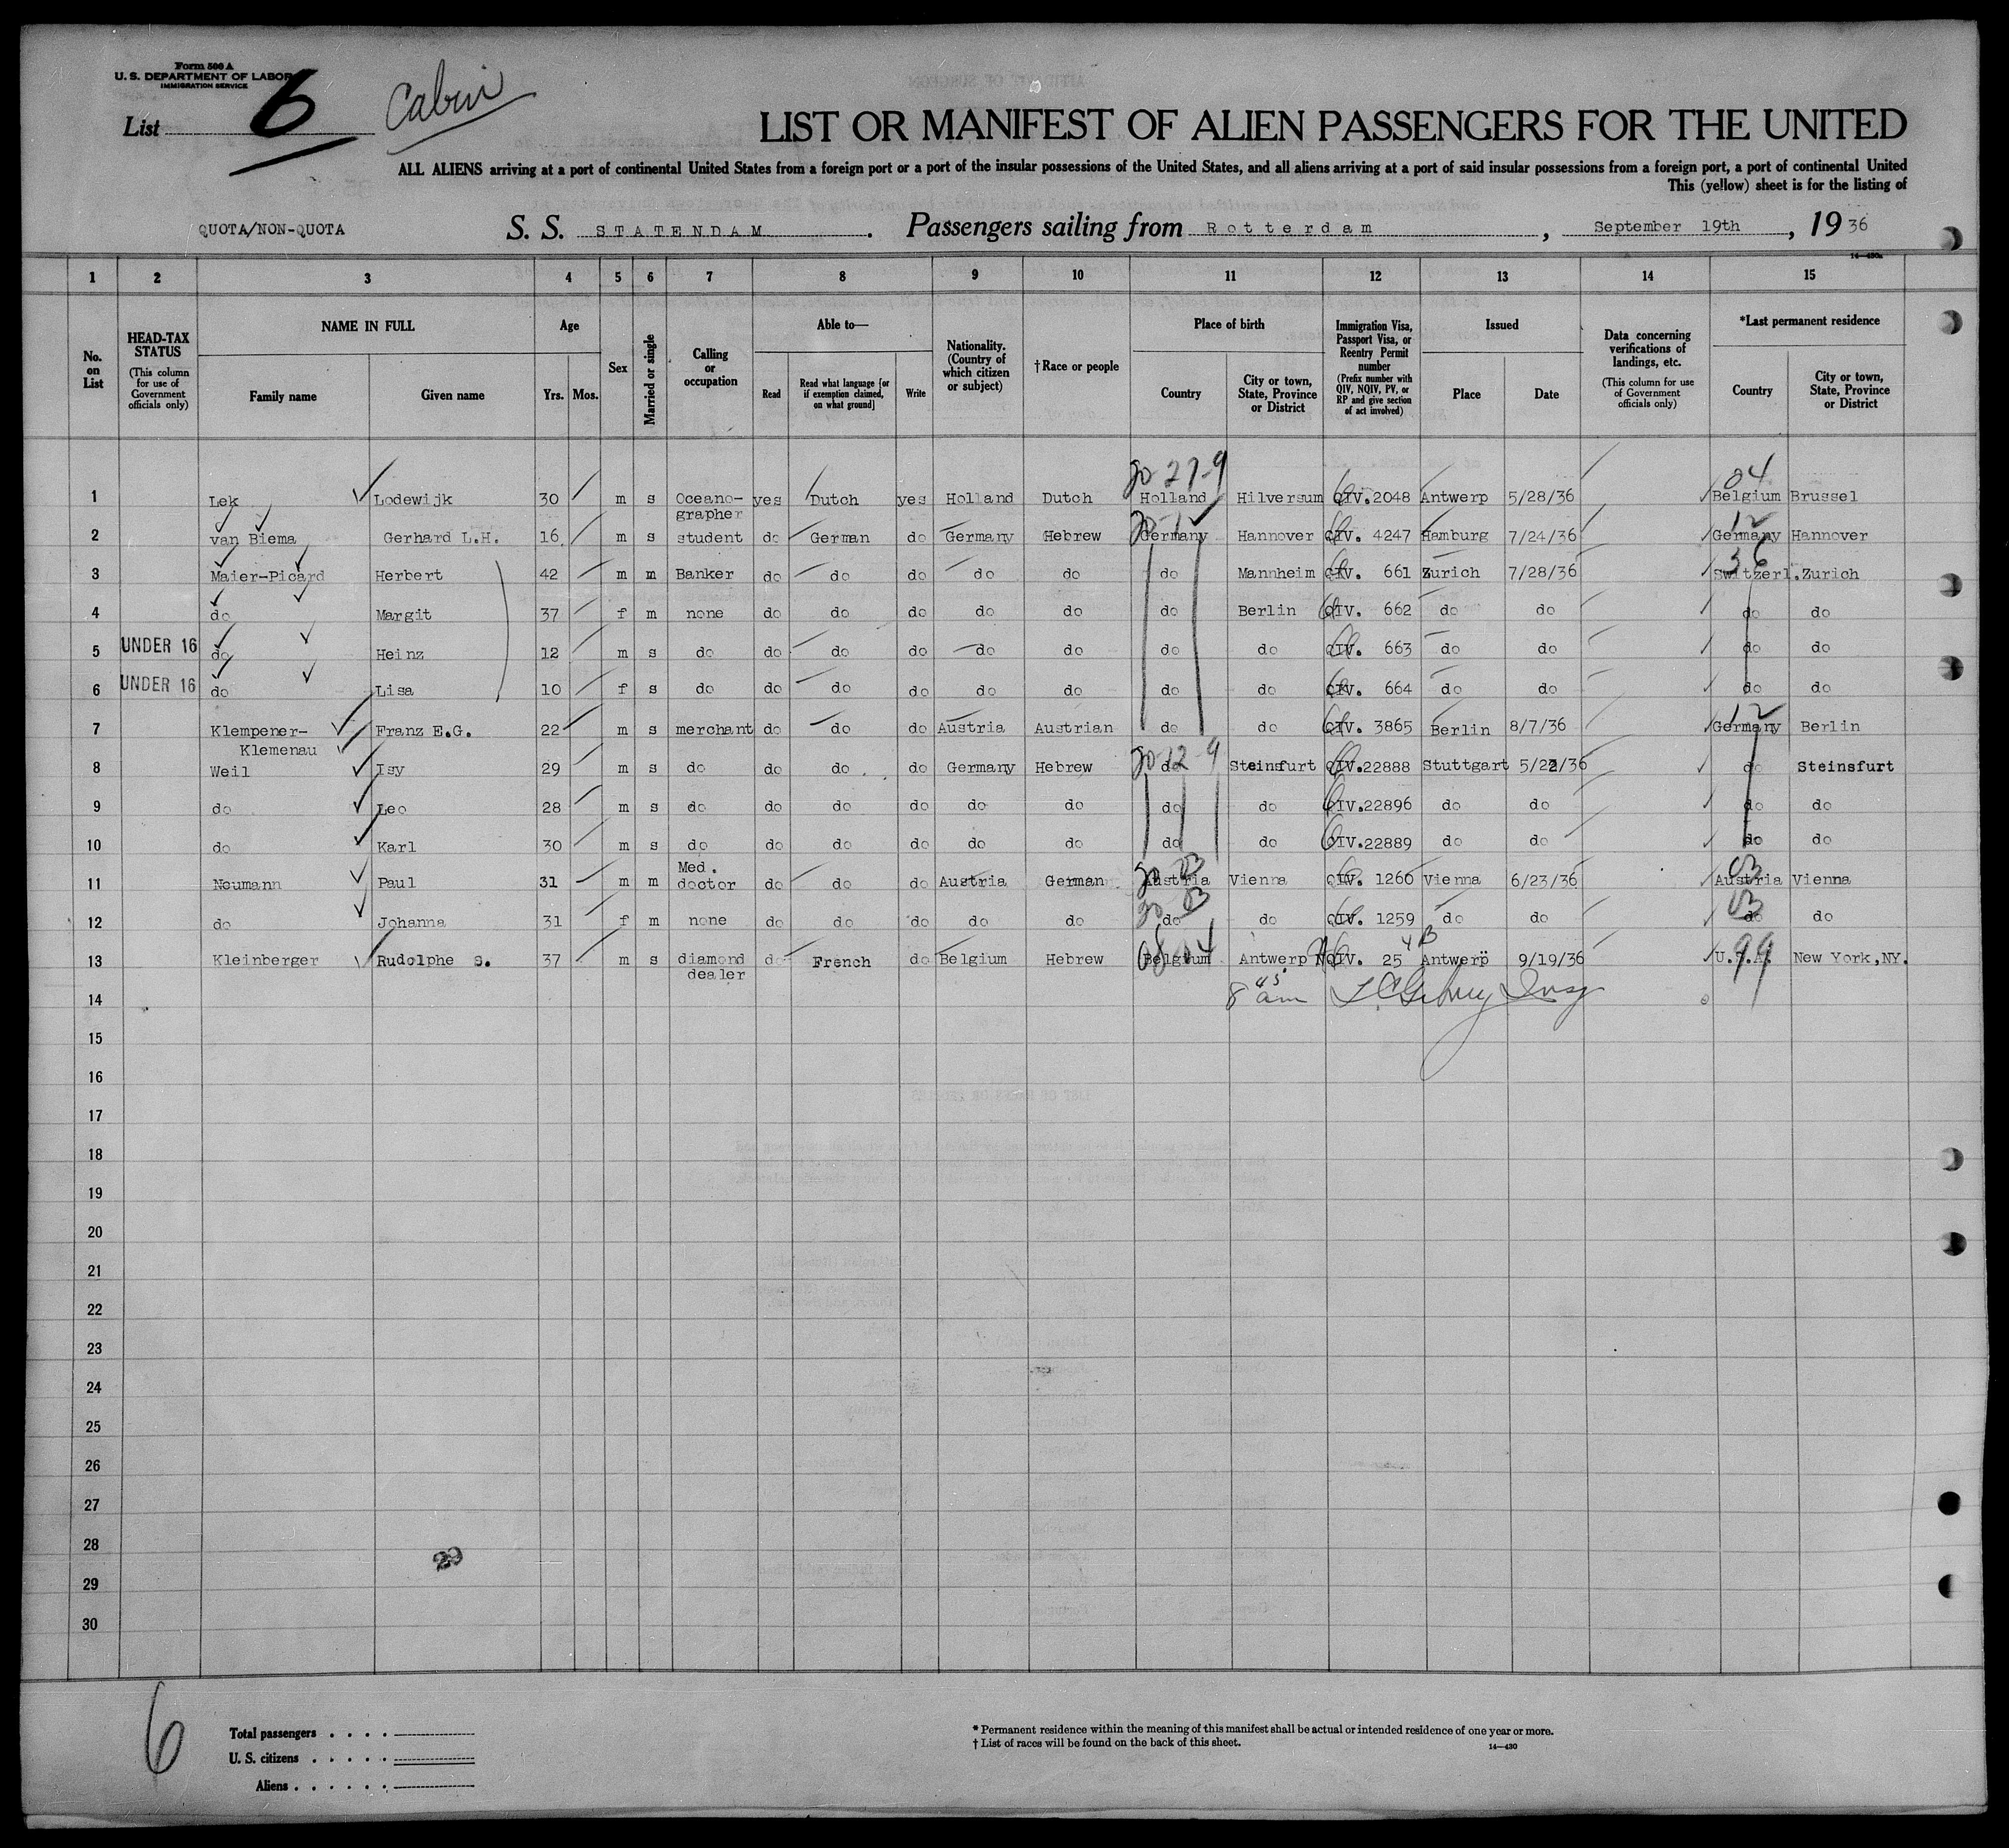 Form 500 A
U. S. DEPARTMENT OF LABOR
IMMIGRATION SERVICE
List 6 Cabin
LIST OR MANIFEST OF ALIEN PASSENGERS FOR THE UNITED
ALL ALIENS arriving at a port of continental United States from a foreign port or a port of the insular possessions of the United States, and all aliens arriving at a port of said insular possessions from a foreign port, a port of continental United
This (yellow) sheet is for the listing of
QUOTA/NON-QUOTA S. S. STATENDAM . Passengers sailing from Rotterdam , September 19th , 19 36
14—430a
1 2 3 4 5 6 7 8 9 10 11 12 13 14 15
No. on List
HEAD-TAX STATUS
(This column for use of Government officials only)
NAME IN FULL
Family name Given name
Age
Yrs. Mos.
Sex
Married or single
Calling or occupation
Able to—
Read
Read what language [or if exemption claimed, on what ground]
Write
Nationality. (Country of which citizen or subject)
†Race or people
Place of birth
Country
City or town, State, Province or District
Immigration Visa, Passport Visa, or Reentry Permit number
(Prefix number with QIV, NQIV, PV, or RP and give section of act involved)
Issued
Place Date
Data concerning verifications of landings, etc.
(This column for use of Government officials only)
*Last permanent residence
Country
City or town, State, Province or District
1 Lek Lodewijk 30 m s Oceano-grapher yes Dutch yes Holland Dutch Holland Hilversum QIV.2048 Antwerp 5/28/36 04 Belgium Brussel
2 van Biema Gerhard L.H. 16 m s student do German do Germany Hebrew Germany Hannover QIV. 4247 Hamburg 7/24/36 12 Germany Hannover
3 Maier-Picard Herbert 42 m m Banker do do do do do do Mannheim QIV. 661 Zurich 7/28/36 36 Switzerl. Zurich
4 do Margit 37 f m none do do do do do do Berlin QIV. 662 do do do do
5 UNDER 16 do Heinz 12 m s do do do do do do do do QIV. 663 do do do do
6 UNDER 16 do Lisa 10 f s do do do do do do do do QIV. 664 do do do do
7 Klempener-Klemenau Franz E.G. 22 m s merchant do do do Austria Austrian do do QIV. 3865 Berlin 8/7/36 12 Germany Berlin
8 Weil Isy 29 m s do do do do Germany Hebrew do Steinsfurt QIV.22888 Stuttgart 5/22/36 do Steinsfurt
9 do Leo 28 m s do do do do do do do do QIV.22896 do do do do
10 do Karl 30 m s do do do do do do do do QIV.22889 do do do do
11 Neumann Paul 31 m m Med. doctor do do do Austria German Austria Vienna QIV. 1260 Vienna 6/23/36 03 Austria Vienna
12 do Johanna 31 f m none do do do do do do do QIV. 1259 do do 03 do do
13 Kleinberger Rudolphe S. 37 m s diamond dealer do French do Belgium Hebrew Belgium Antwerp NQIV. 25 4 B Antwerp 9/19/36 99 U.S.A. New York,NY.
14 8 45 am
15
16
17
18
19
20
21
22
23
24
25
26
27
28
29
30
6
Total passengers
U. S. citizens
Aliens
* Permanent residence within the meaning of this manifest shall be actual or intended residence of one year or more.
† List of races will be found on the back of this sheet.
14—430